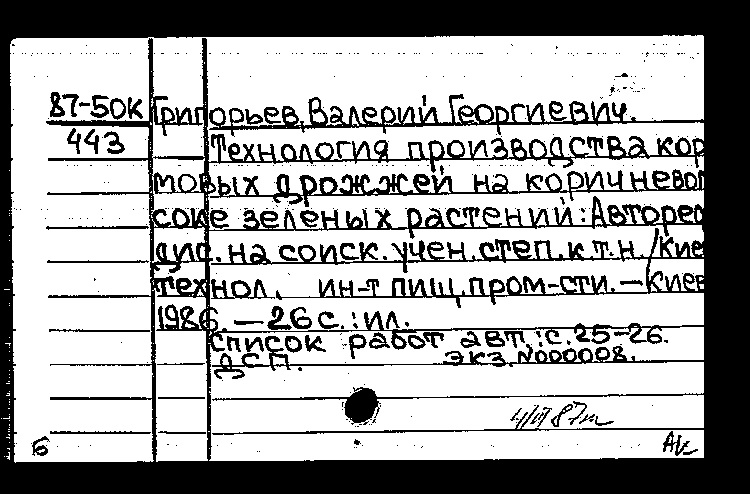 87-50К Григорьев, Валерий Георгиевич.
443 Технология производства кор
мовых дрожжей на коричневом
соке зеленых растений: Автореф
дис. на соиск. учен. степ. к.т.н. /Киев
технол. ин-т пищ. пром-сти. — Киев
1986. — 26 с. : ил.
Список работ авт.: с. 25-26.
ДСП. экз. N000008.
Б АК